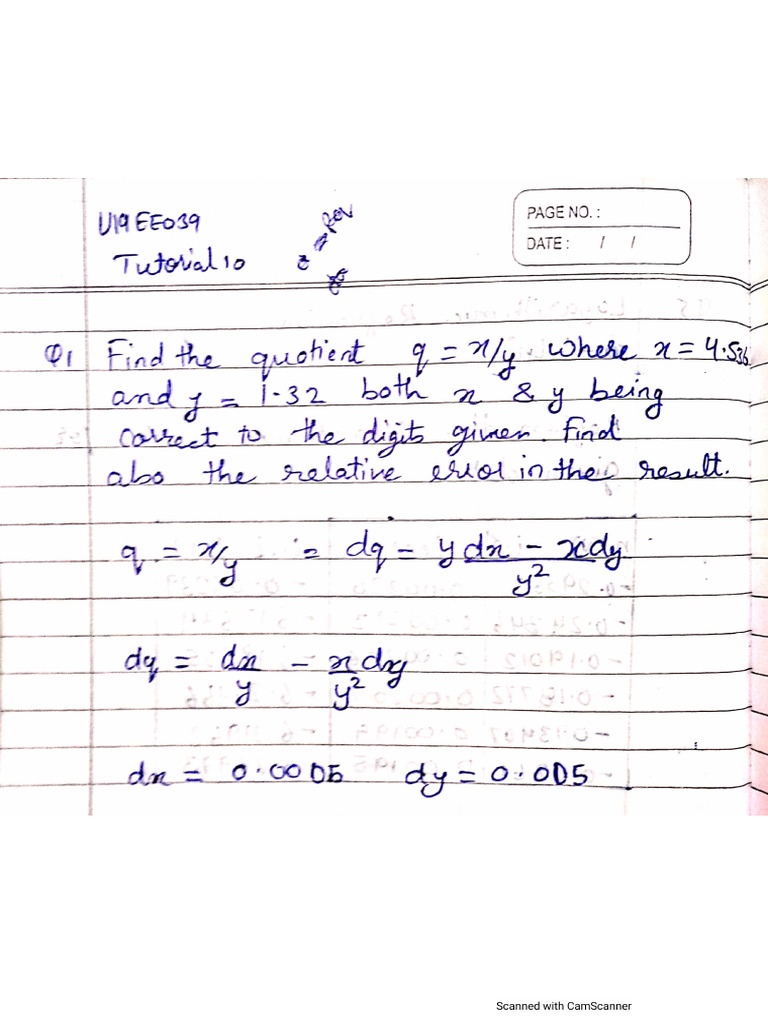 U19EE039
Tutorial 10
PAGE NO. :
DATE : / /
Q1 Find the quotient q = x/y where x = 4.536
and y = 1.32 both x & y being
correct to the digits given. Find
also the relative error in the result.
q = x/y = dq = ydx - xdy / y²
dq = dx/y - x dxy/y²
dx = 0.0005 dy = 0.005
Scanned with CamScanner